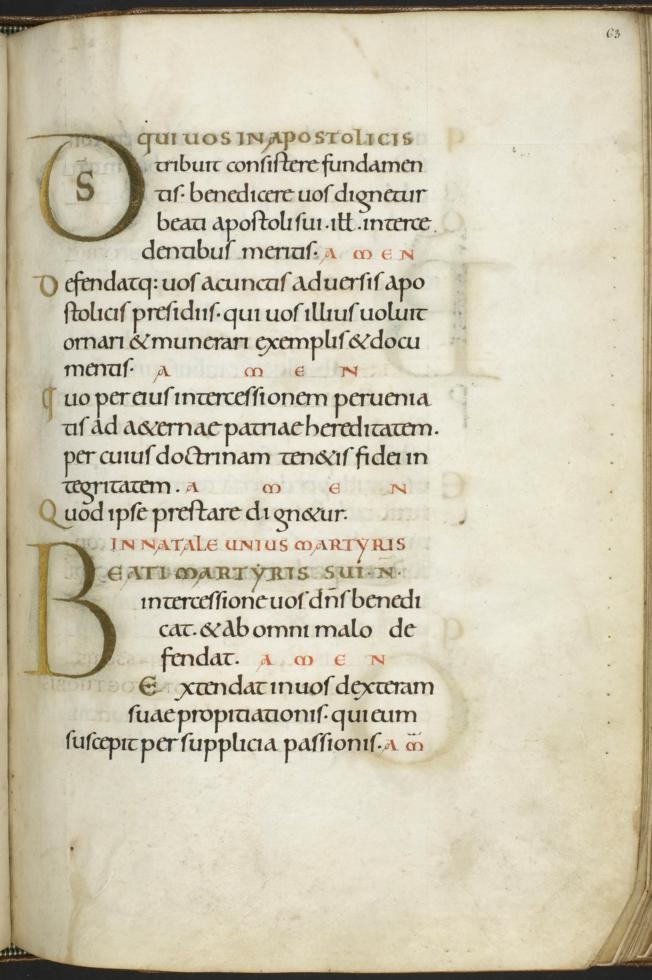 63
D̅S QUI UOS IN APOSTOLICIS
tribuit consistere fundamen
tis· benedicere uos dignetur
beati apostoli sui·ill̅·interce
dentibus meritis· A M E N
Defendatq: uos a cunctis aduersis apo
stolicis presidiis· qui uos illius uoluit
ornari & munerari exemplis & docu
mentis· A M E N
Quo per eius intercessionem peruenia
tis ad a&ernae patriae hereditatem·
per cuius doctrinam ten&is fidei in
tegritatem· A M E N
Quod ipse prestare dign&ur·
IN NATALE UNIUS MARTYRIS
BEATI MARTYRIS SUI·N̅·
intercessione uos dn̅s benedi
cat·& ab omni malo de
fendat· A M E N
Extendat in uos dexteram
suae propitiationis· qui eum
suscepit per supplicia passionis· A M̅